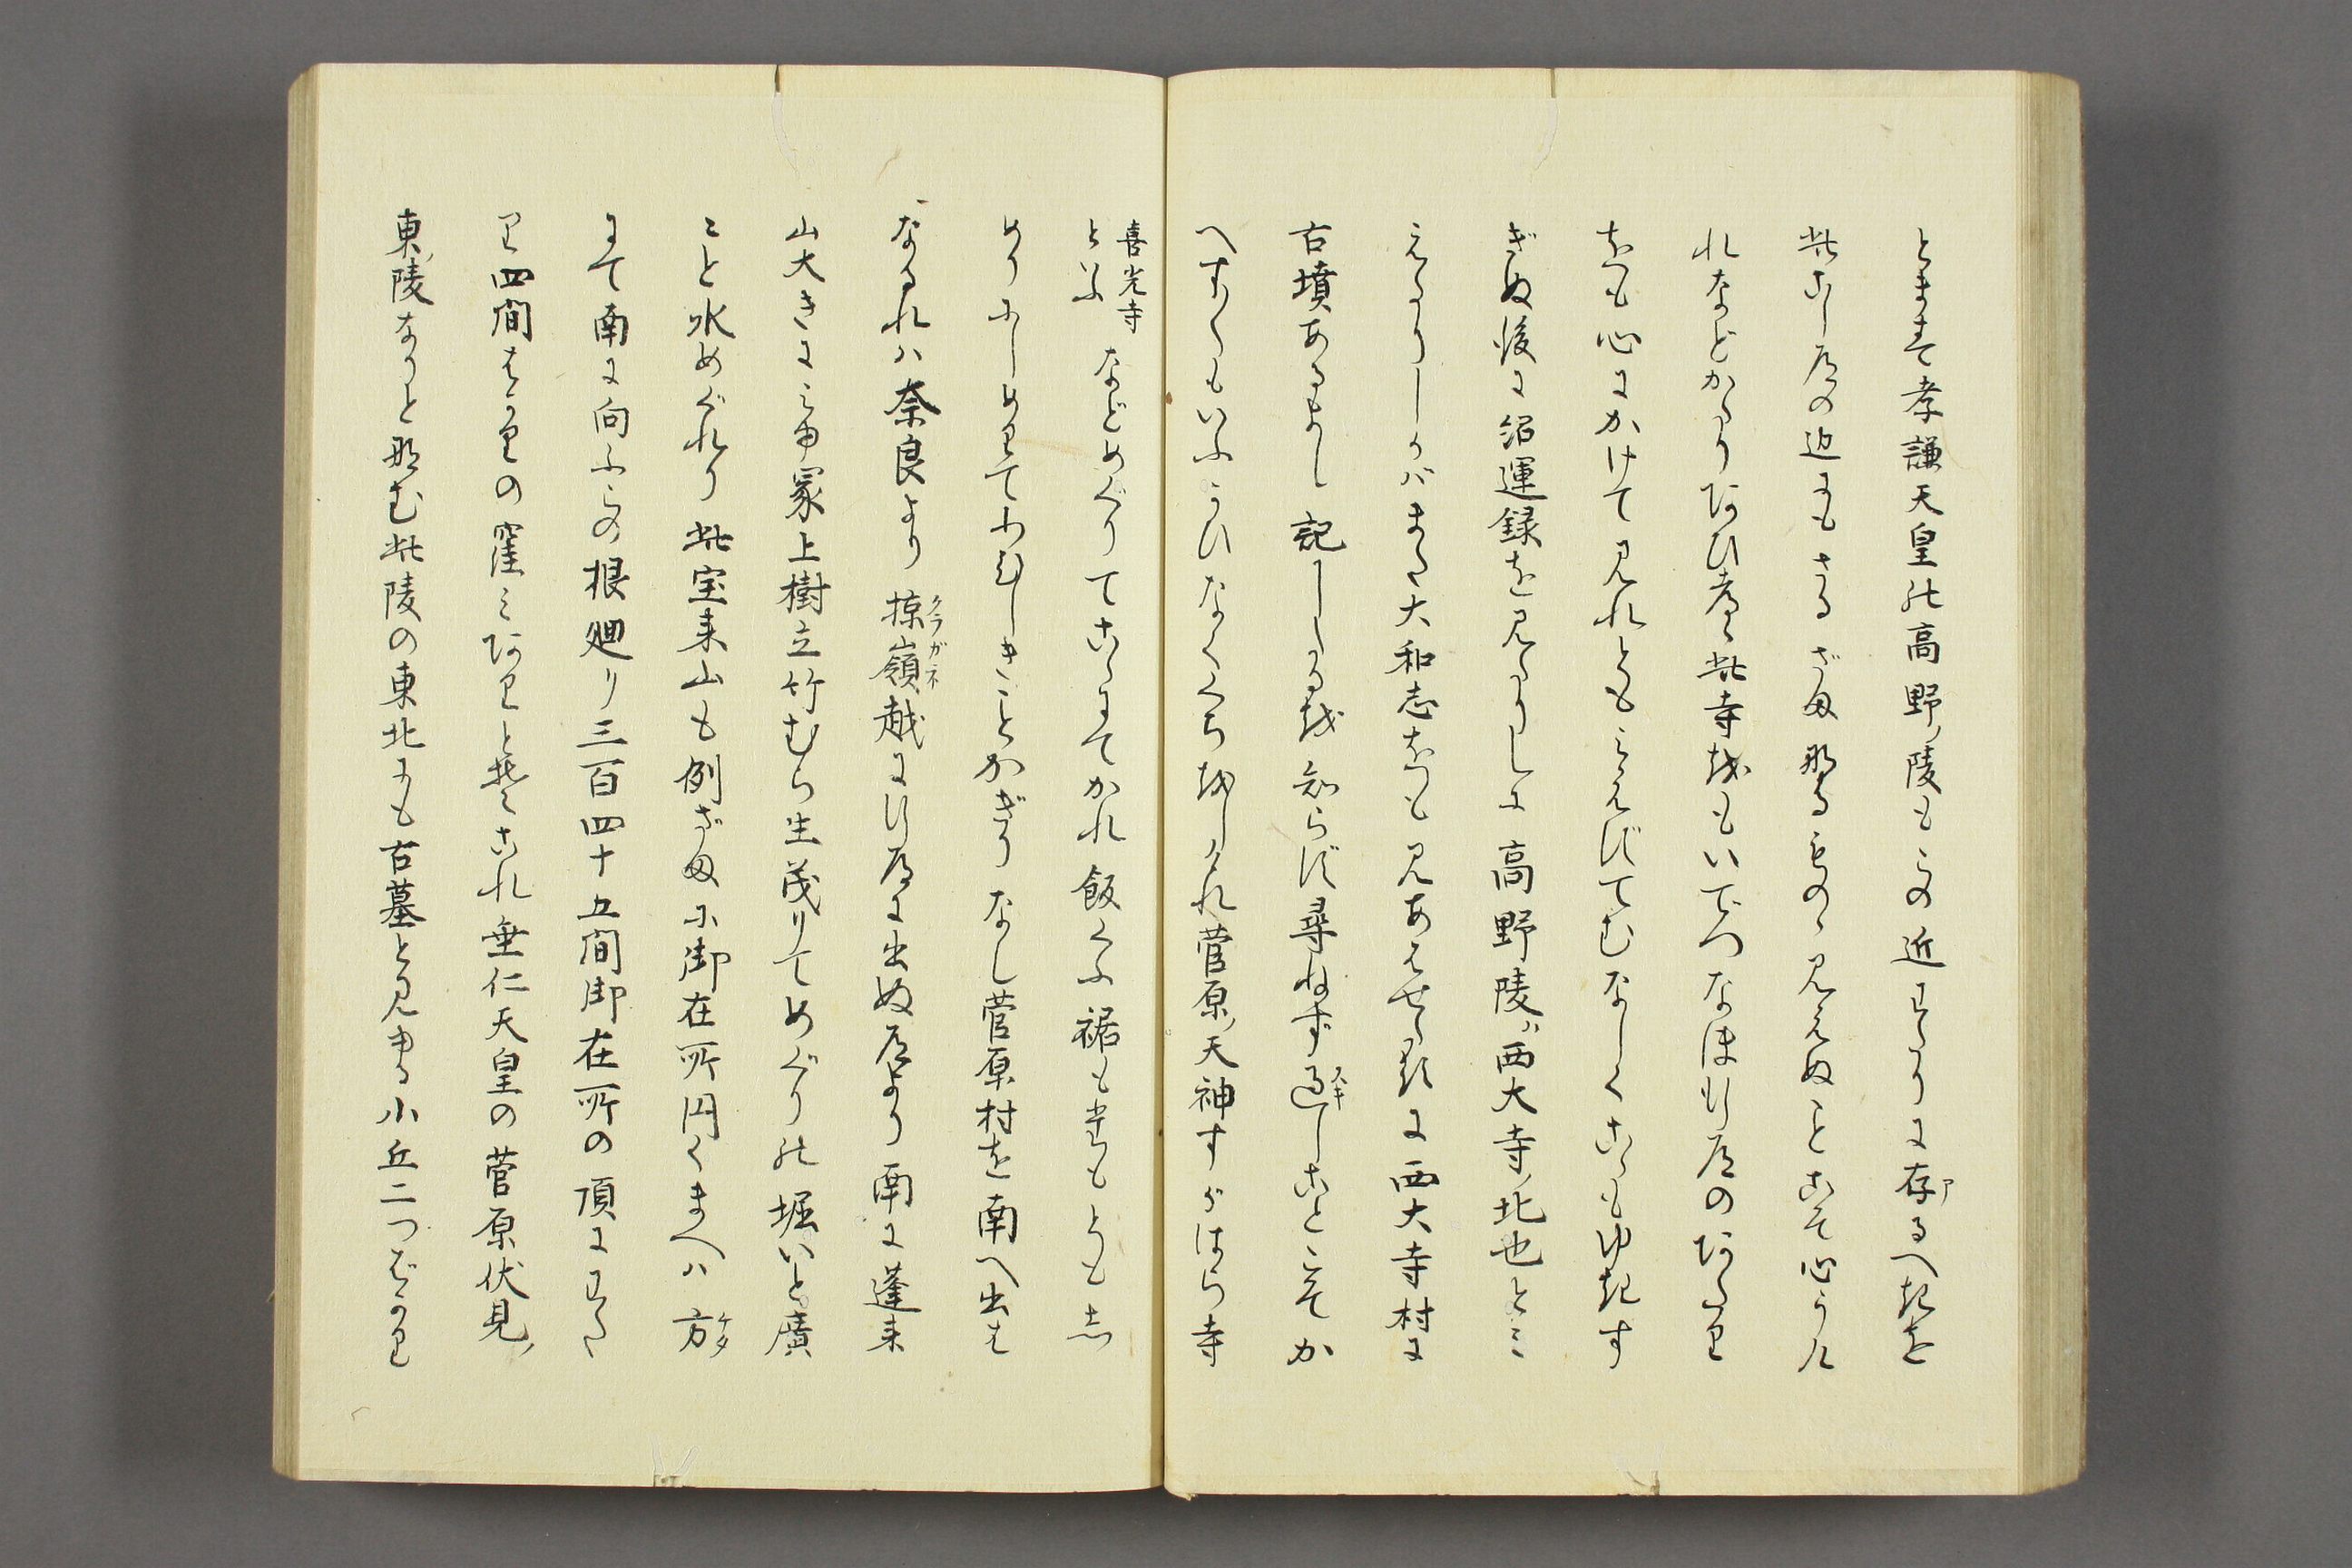 とまをす孝謙天皇の高野ノ陵もこの近きわたりに存るへきを
此こし道の辺にもさるざまなるものゝ見えぬことこそ心うけ
れなどかたりあひ考ゝ此寺をもいでつなほ行道のあたり
をも心にかけて見れともみえずてむなしくこゝもゆきす
ぎぬ後に紹運録を見たりしに高野陵ハ西大寺ノ北也とみ
えたりしかバまた大和志をも見あはせたるに西大寺村に
古墳あるよし記しゝるを知らず尋ねず過しことこそか
へすくもいふかひなくくちをしけれ菅原ノ天神すがはら寺
喜光寺
といふ
などめぐりてこゝにてかれ飯くふ裾もあらもとも志
めりふしめりてわびしきことかぎりなし菅原村を南へ出は
なるれハ奈良より掠嶺越に行道に出ぬ道より南に蓬来
山大きにみゆ冢上樹立竹むら生茂りてめぐりの堀いと廣
こと水めぐれり此宝来山も例ざまに御在所円くまへハ方
にて南に向ふこの根廻り三百四十五間御在所の頂にわた
り四間ばかりの窪みありとぞこれ垂仁天皇の菅原伏見ノ
東ノ陵なりと那む此陵の東北にも古墓と見ゆる小丘二つばかり